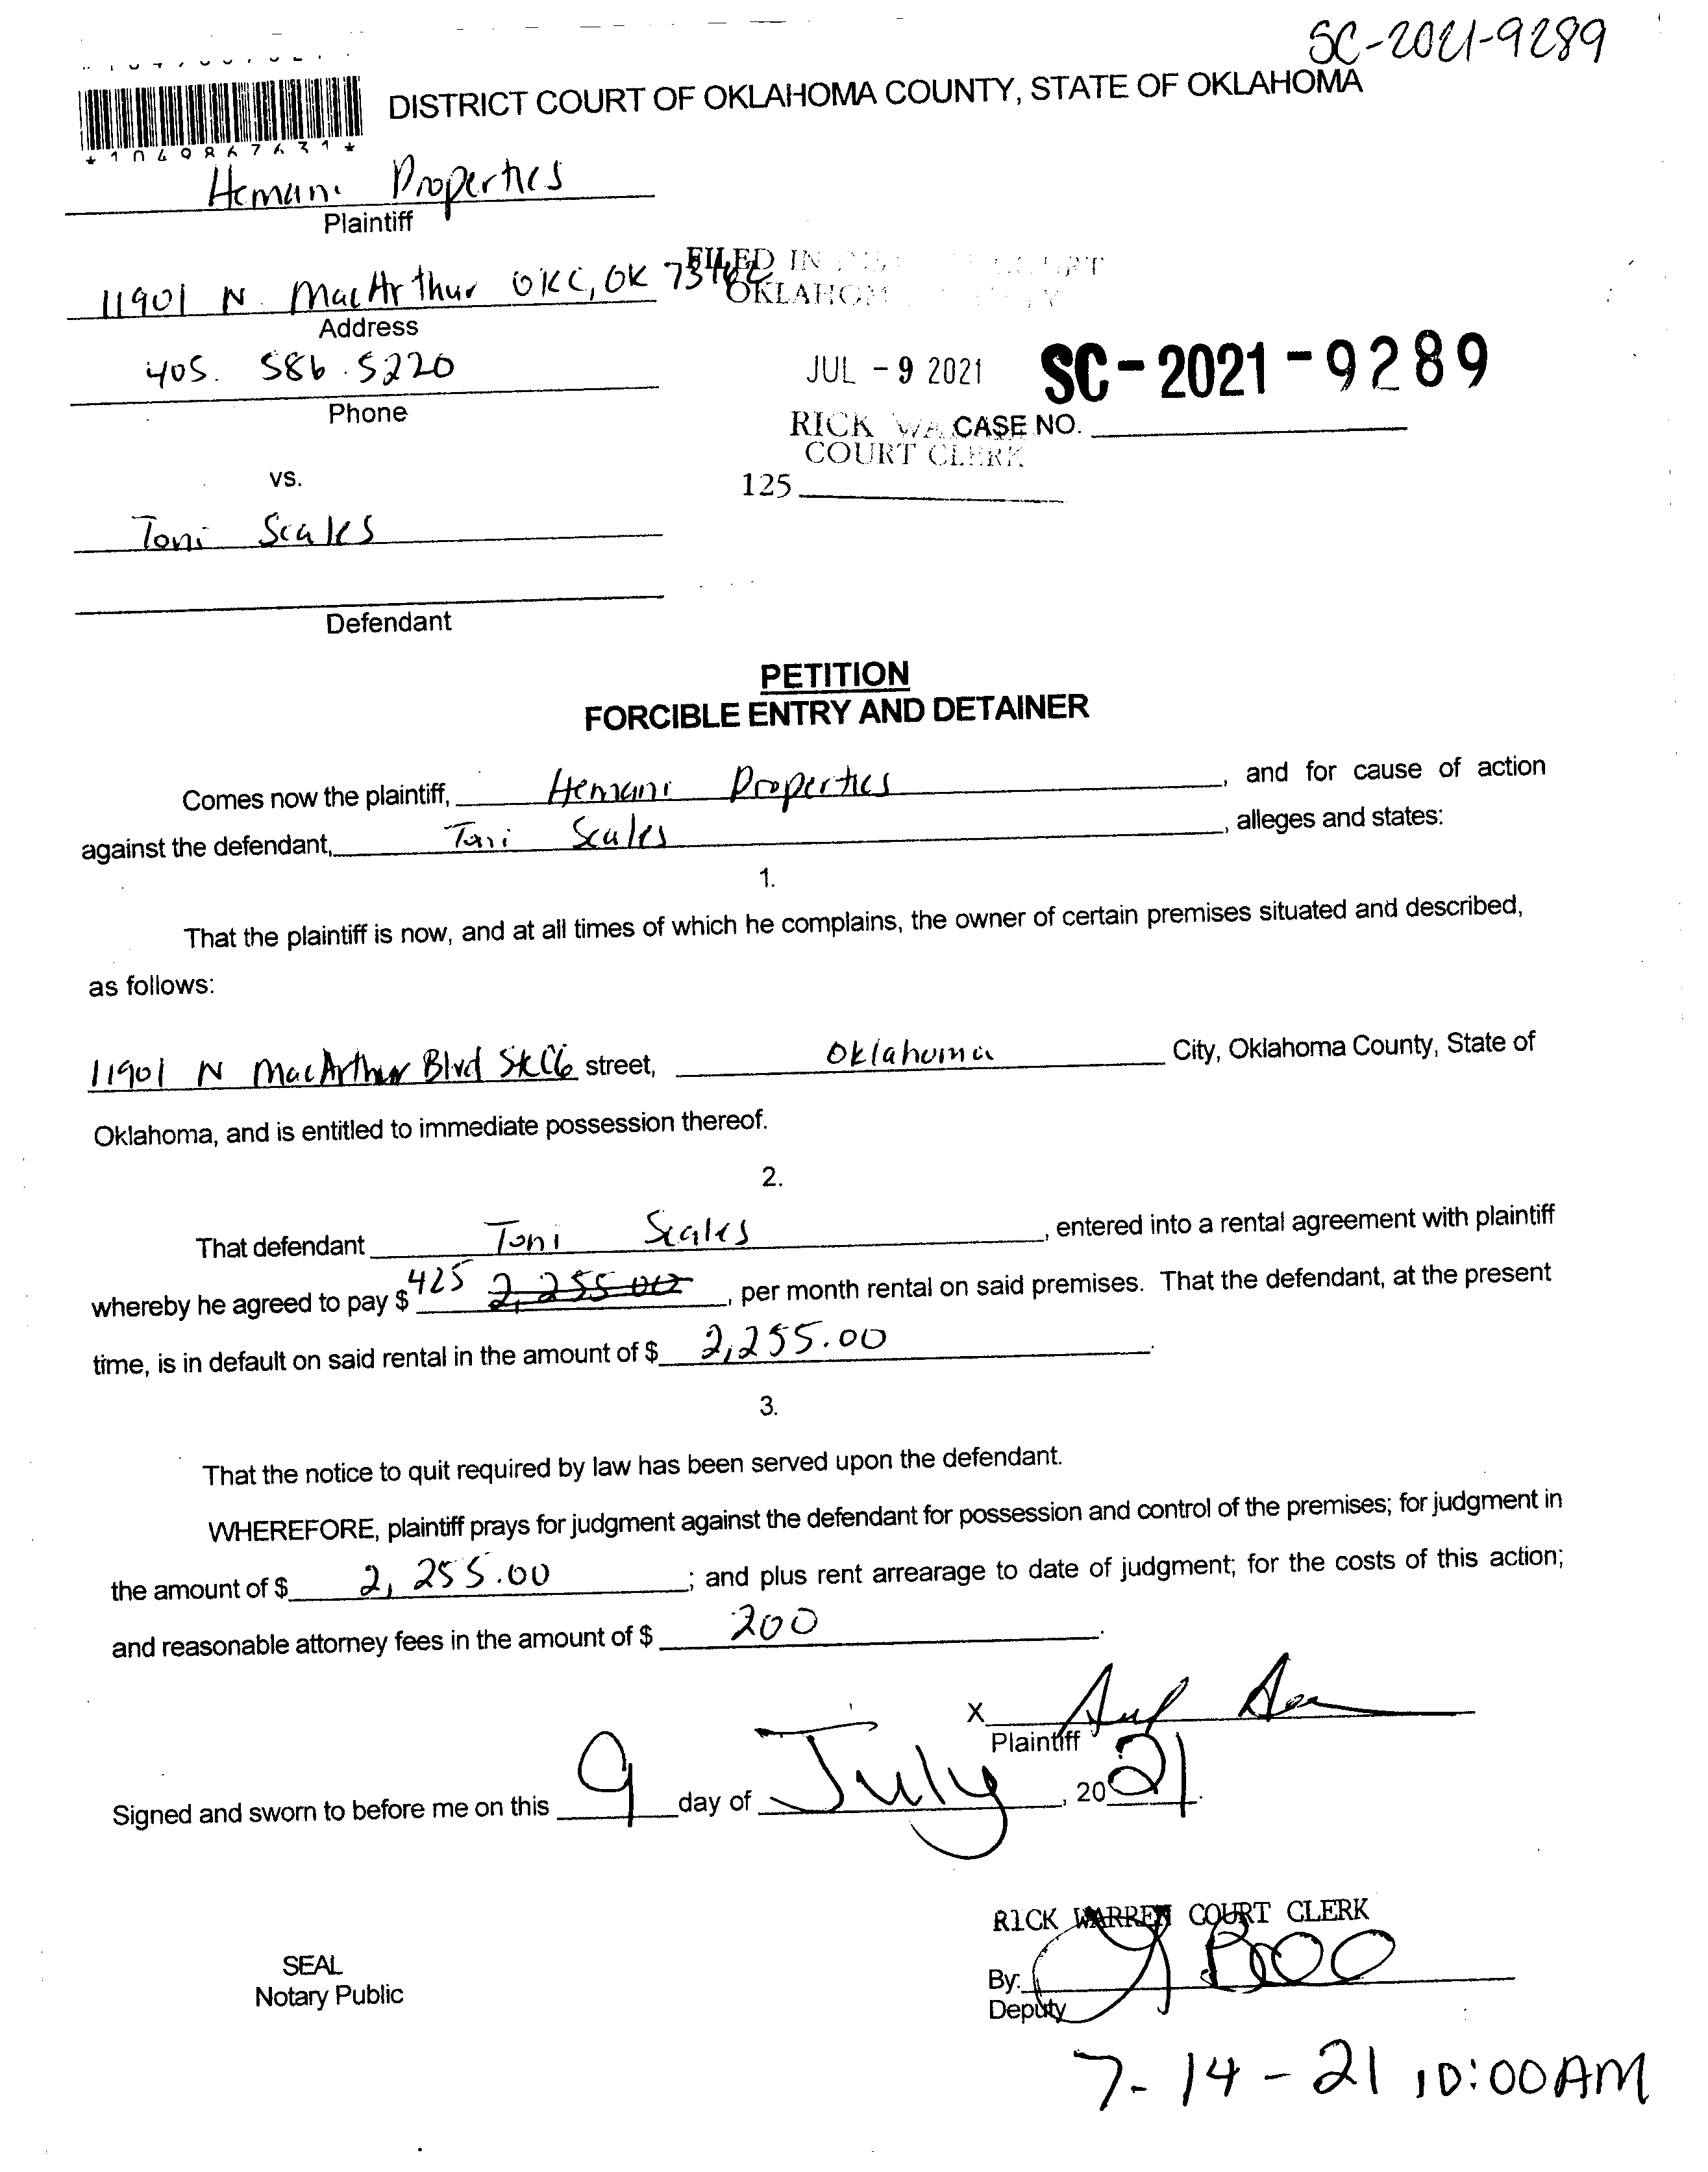 SC-2021-9289
DISTRICT COURT OF OKLAHOMA COUNTY, STATE OF OKLAHOMA
*1049867631*
Hemani Properties
Plaintiff
11901 N. MacArthur OKC, OK
Address
405. 586. 5220
Phone
FILED IN
OKLAHOM
JUL - 9 2021
SC-2021-9289
RICK
CASE NO.
COURT CLERK
125
vs.
Toni Scales
Defendant
PETITION
FORCIBLE ENTRY AND DETAINER
Comes now the plaintiff, Hemani Properties, and for cause of action
against the defendant, Toni Scales, alleges and states:
1.
That the plaintiff is now, and at all times of which he complains, the owner of certain premises situated and described,
as follows:
11901 N MacArthur Blvd Ste C6 street, Oklahoma City, Oklahoma County, State of
Oklahoma, and is entitled to immediate possession thereof.
2.
That defendant Toni Scales, entered into a rental agreement with plaintiff
whereby he agreed to pay $ 425 2,255.00, per month rental on said premises. That the defendant, at the present
time, is in default on said rental in the amount of $ 2,255.00.
3.
That the notice to quit required by law has been served upon the defendant.
WHEREFORE, plaintiff prays for judgment against the defendant for possession and control of the premises; for judgment in
the amount of $ 2,255.00; and plus rent arrearage to date of judgment; for the costs of this action;
and reasonable attorney fees in the amount of $ 200.
X
Plaintiff
Signed and sworn to before me on this 9 day of July, 2021.
RICK WARREN COURT CLERK
SEAL
Notary Public
By:
Deputy
7-14-21 10:00AM